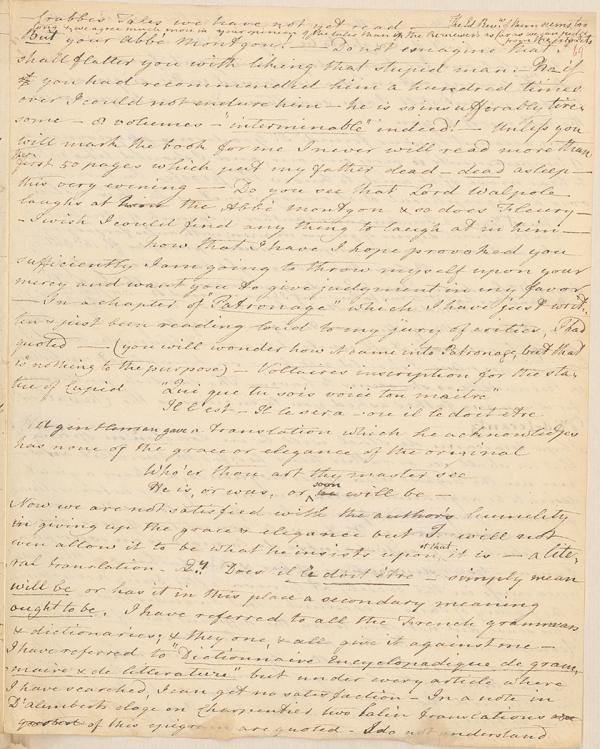 Crabbes Tales we have not yet read — The Ed. Revrs. of them seems too
long & we agree much more in your opinion of the tales than in the Reviewers as far as we can judge from the extracts
But your Abbé Montgon. — Do not imagine that I 49
shall flatter you with liking that stupid man. — No if
you had recommended him a hundred times
over I could not endure him — he is so insufferably tire-
some — 8 volumes — "interminable" indeed! — Unless you
will mark the book for me I never will read more than
the first 50 pages which put my father dead — dead asleep —
this very evening — Do you see that Lord Walpole
laughs at the Abbé Montgon & so does Fleury —
— I wish I could find any thing to laugh at in him —
Now that I have I hope provoked you
sufficiently I am going to throw myself upon your
mercy and want you to give judgment in my favor
— In a chapter of "Patronage" which I have just writ-
ten & just been reading loud to my jury of critics, I had
quoted — (you will wonder how it came into Patronage, but that
is nothing to the purpose) — Voltaires inscription for the sta-
tue of Cupid "Qui que tu sois voici ton maitre"
Il l'est — Il le sera — ou il le doit etre
A gentleman gave a Translation which he acknowledges
has none of the grace or elegance of the original
Who'er thou art thy master see
He is, or was, or soon will be —
Now we are not satisfied with the author's humility
in giving up the grace & elegance but I will not
even allow it to be what he insists upon it that it is — a lite-
ral translation — Qy. Does il le doit etre — simply mean
will be or has it in this place a secondary meaning
ought to be. I have referred to all the French grammars
& dictionaries; & they one & all give it against me —
I have referred to "Dictionnaire Encyclopadeque de gram-
maire & de litterature" but under every article where
I have searched, I can get no satisfaction — In a note in
D'alemberts eloge on Charpentier two Latin translations
of this epigram are quoted — I do not understand